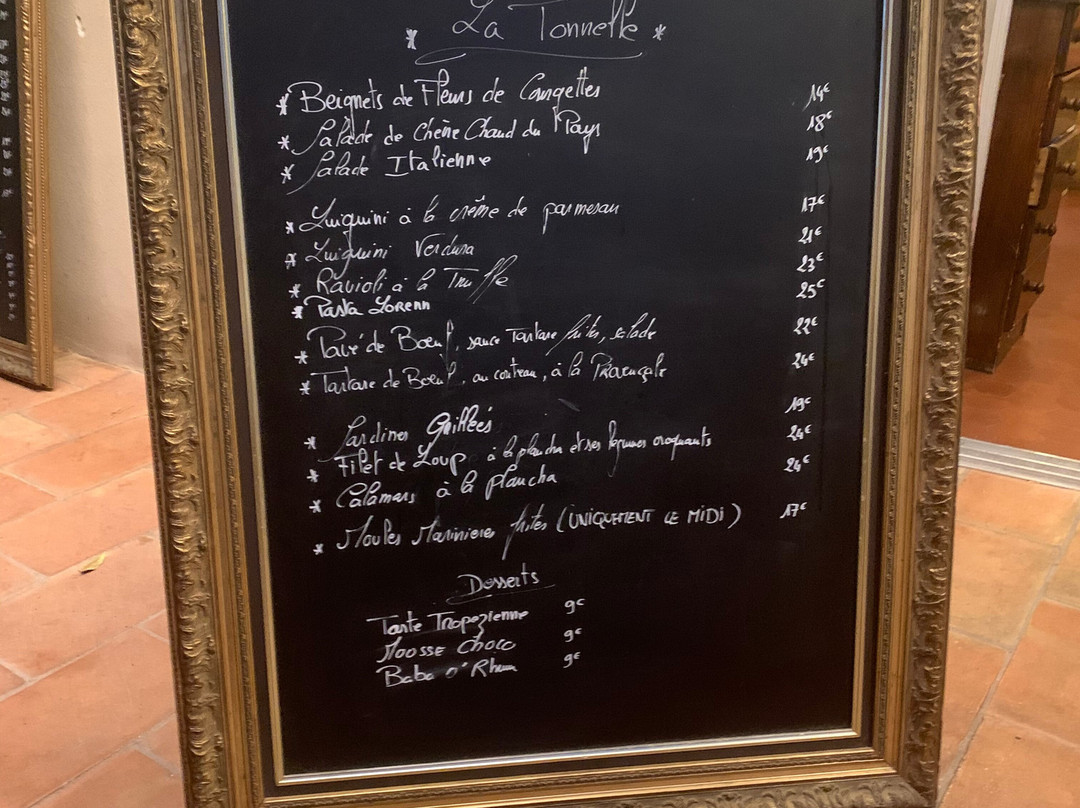 * La Tonnelle *
* Beignets de Fleurs de Courgettes 14€
* Salade de Chèvre Chaud du Pays 18€
* Salade Italienne 19€
* Linguini à la crème de parmesan 17€
* Linguini Verdura 21€
* Ravioli à la Truffe 23€
* Pasta Lorenn 25€
* Pavé de Boeuf, sauce Tartare frites, salade 22€
* Tartare de Boeuf, au couteau, à la Provençale 24€
* Sardines Grillées 19€
* Filet de Loup à la plancha et ses légumes croquants 24€
* Calamars à la plancha 24€
* Moules Marinieres frites (UNIQUEMENT LE MIDI) 17€
Desserts
Tarte Tropezienne 9€
Mousse Choco 9€
Baba o' Rhum 9€